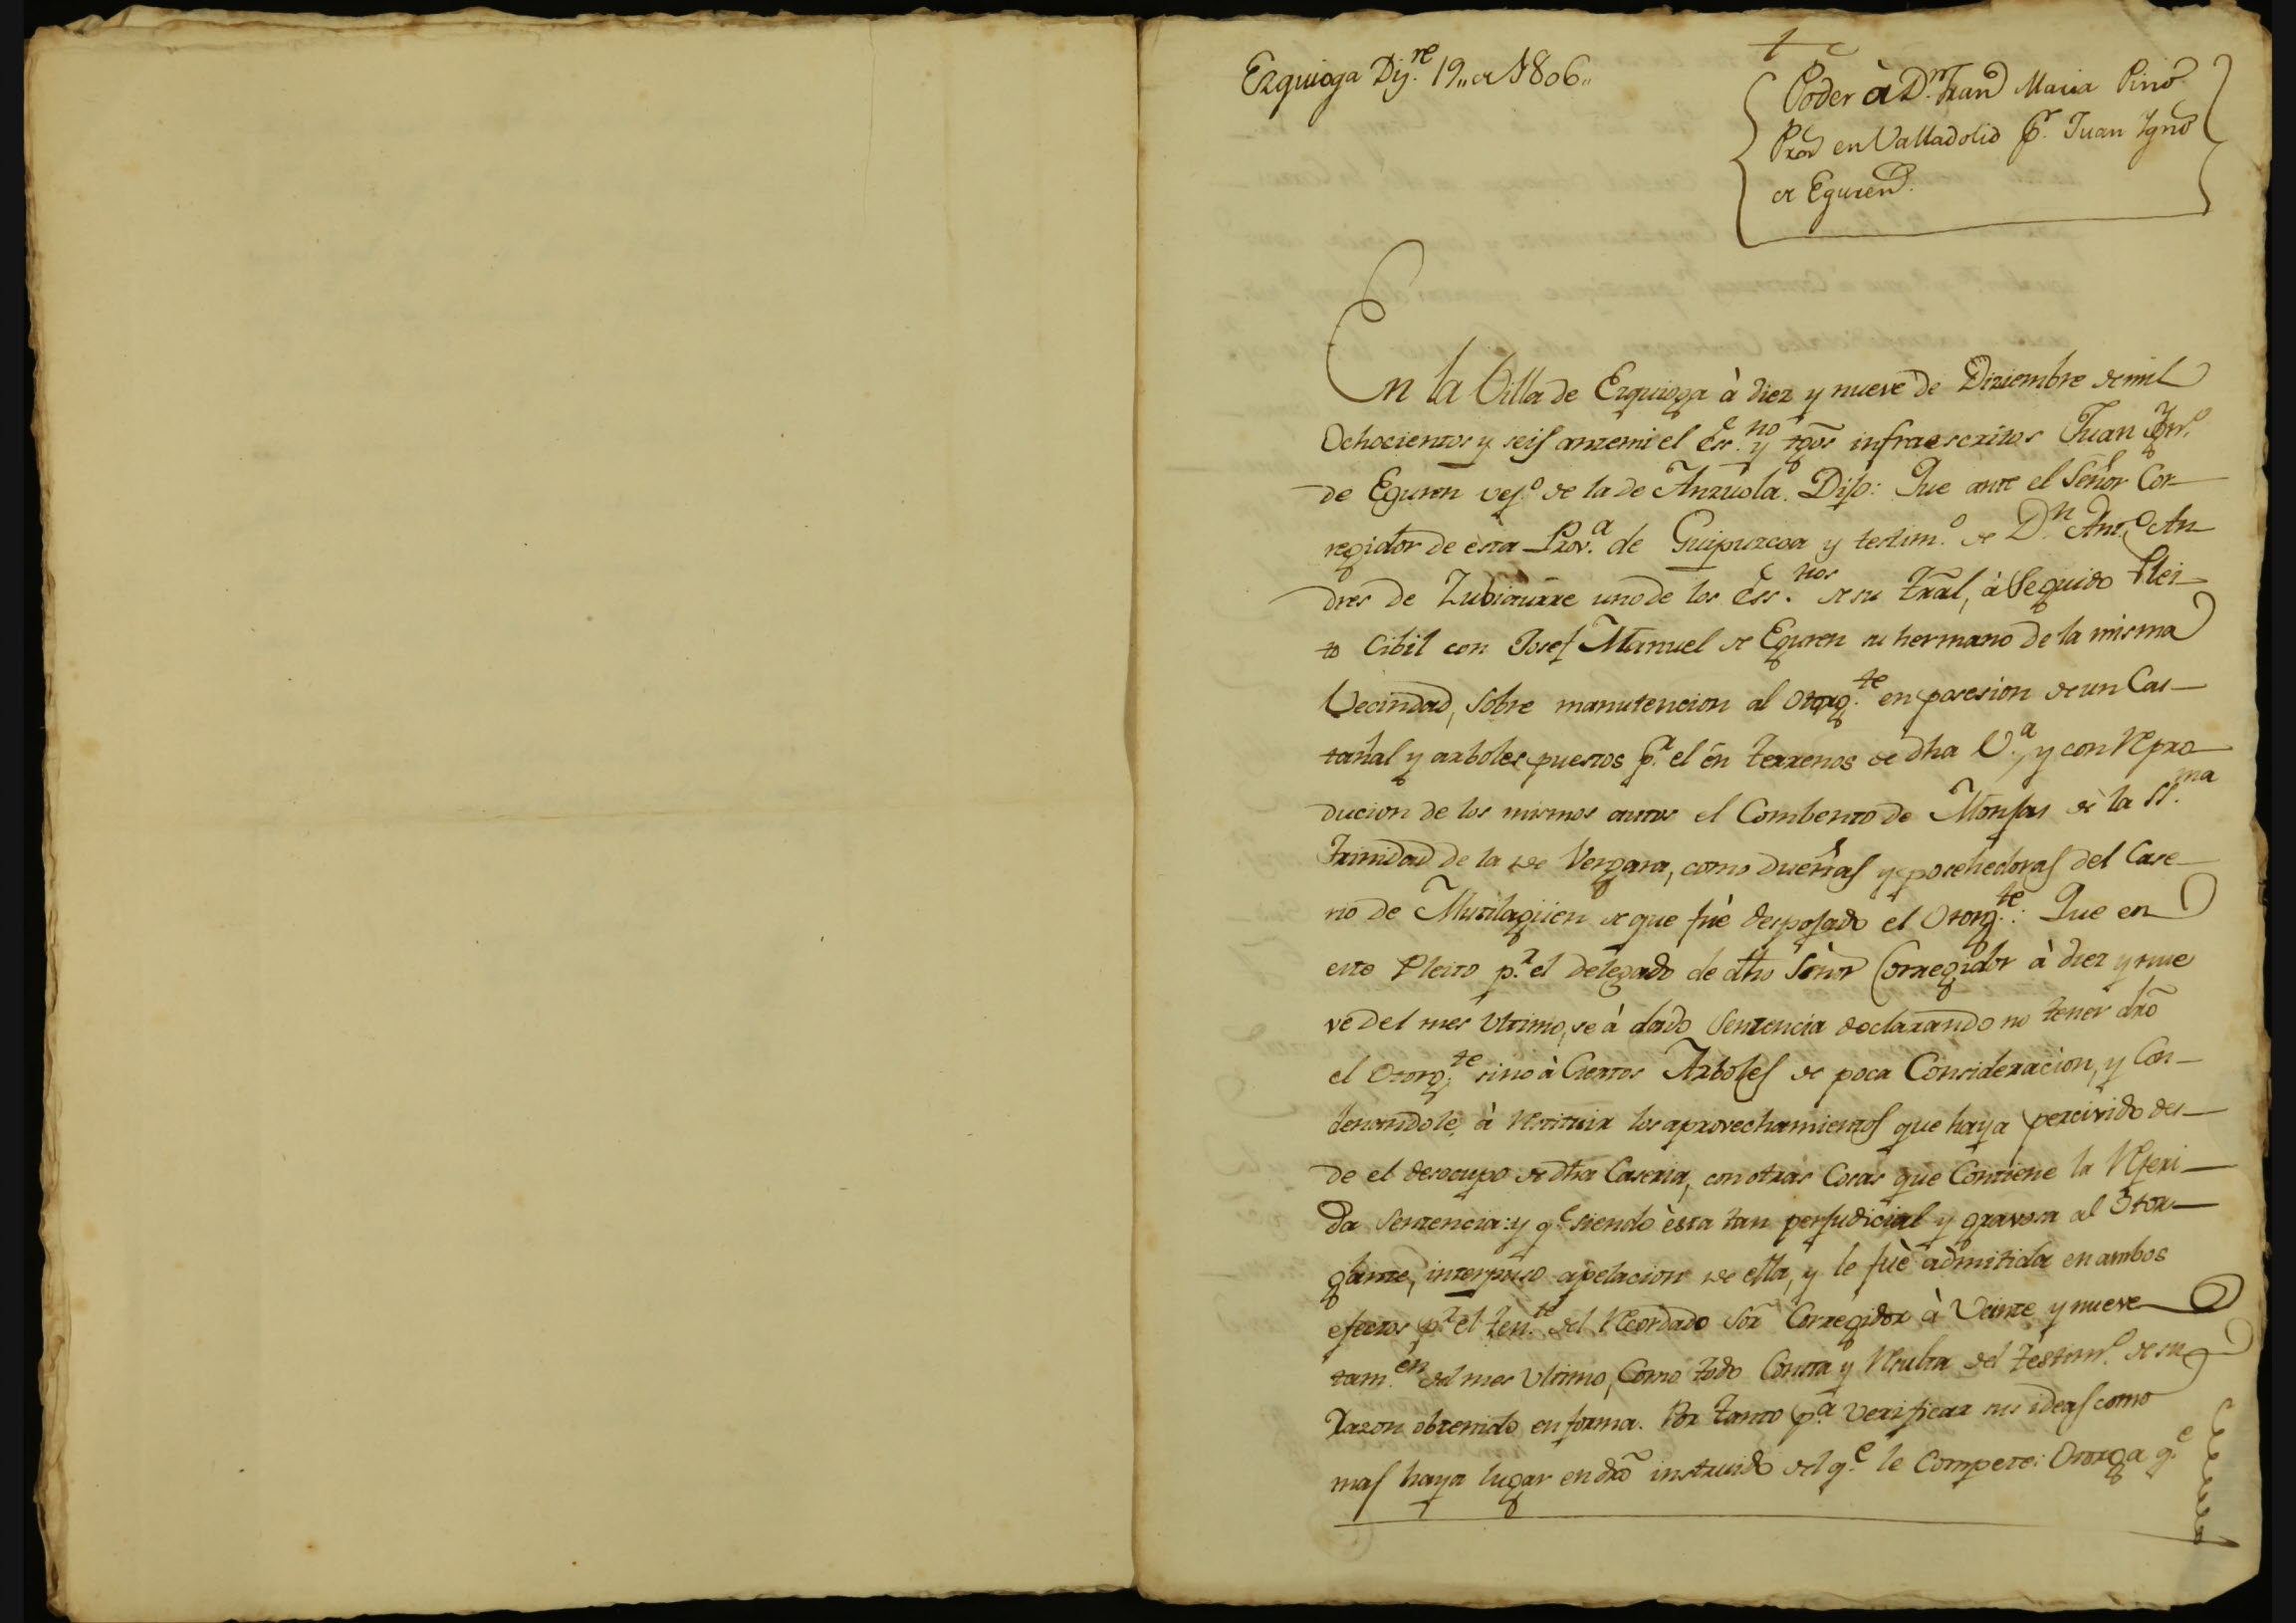 Ezquioga Diz.re 19,, de 1806,,
Poder à D.n Fran.co Maria Pino
Pror en Valladolid p.r Juan Ygnº
de Eguren.
En la Villa de Ezquioga à diez y nueve de Diziembre de mil
Ochocientos y seis antemi el Ess.no y tgos infraescritos Juan Ygnº
de Eguren vezº de la de Anzuola. Dijo: Que ante el Señor Cor-
regidor de esta Prov.a de Guipuzcoa y testim.o de D.n Ant.o An-
dres de Zubiaurre uno de los Ess.nos de su Tral, à Seguido Plei-
to Cibil con Josef Manuel de Eguren su hermano de la misma
Vecindad, sobre manutencion al otorg.te en posesion de un Cas-
tañal y arboles puestos p.r el en terrenos de dha V.a, y con Repro-
ducion de los mismos autos el Combento de Monjas de la SS.ma
Trinidad de la de Vergara, como dueñas y posehedoras del Case-
rio de Mutilagüen de que fuè despojado el Otorg.te: Que en
este Pleito p.r el delegado de dho Señor Corregidor à diez y nue
ve del mes ultimo, se à dado Sentencia declarando no tener dro
el Otorg.te sino à Ciertos Arboles de poca Consideracion, y Con-
denandole à Restituir los aprovechamientos que haya percivido des-
de el desocupo de dha Caseria, con otras Cosas que Contiene la Referi-
da Sentencia: y q.e siendo èsta tan perjudicial y gravosa al Otor-
gante, interpuso apelacion de ella, y le fuè admitida en ambos
efectos p.r el Ten.te del Recordado Sor Corregidor à Veinte y nueve
tam.en del mes ultimo, Como todo Consta y Resulta del Testim.o de su
Razon obtenido en forma. Por tanto p.a verificar sus ideas como
mas haya lugar en dro instruido del q.e le Compete: Otorga q.e